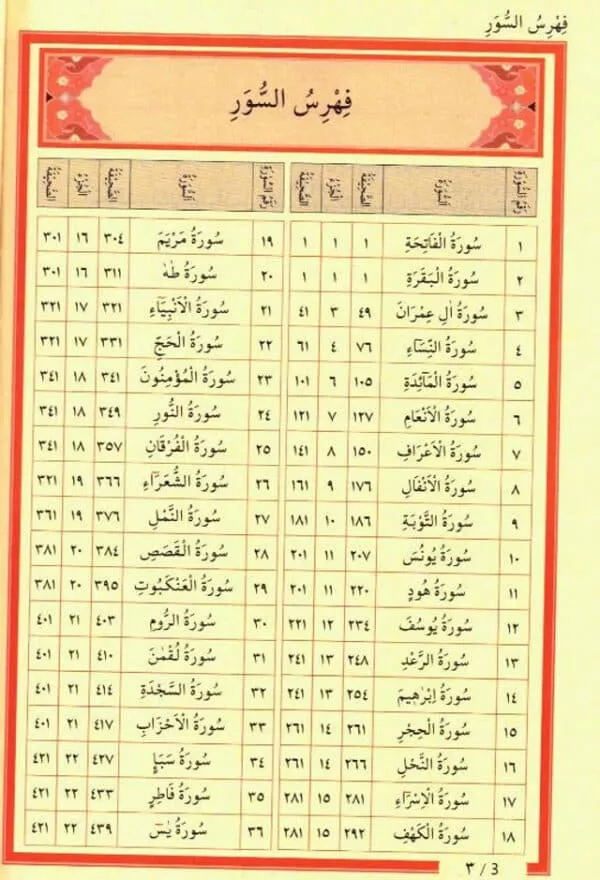 فِهْرِسُ السُّوَرِ
فِهْرِسُ السُّوَرِ
رَقَمُ السُّورَةِ اَلسُّورَةُ الصَّحِيفَةُ الْجُزْءُ الصَّحِيفَةُ
١ سُورَةُ الْفَاتِحَةِ ١ ١ ١
٢ سُورَةُ الْبَقَرَةِ ١ ١ ١
٣ سُورَةُ اٰلِ عِمْرَانَ ٤٩ ٣ ٤١
٤ سُورَةُ النِّسَٓاءِ ٧٦ ٤ ٦١
٥ سُورَةُ الْمَٓائِدَةِ ١٠٥ ٦ ١٠١
٦ سُورَةُ الْاَنْعَامِ ١٢٧ ٧ ١٢١
٧ سُورَةُ الْاَعْرَافِ ١٥٠ ٨ ١٤١
٨ سُورَةُ الْاَنْفَالِ ١٧٦ ٩ ١٦١
٩ سُورَةُ التَّوْبَةِ ١٨٦ ١٠ ١٨١
١٠ سُورَةُ يُونُسَ ٢٠٧ ١١ ٢٠١
١١ سُورَةُ هُودٍ ٢٢٠ ١١ ٢٠١
١٢ سُورَةُ يُوسُفَ ٢٣٤ ١٢ ٢٢١
١٣ سُورَةُ الرَّعْدِ ٢٤٨ ١٣ ٢٤١
١٤ سُورَةُ اِبْرٰهِيمَ ٢٥٤ ١٣ ٢٤١
١٥ سُورَةُ الْحِجْرِ ٢٦١ ١٤ ٢٦١
١٦ سُورَةُ النَّحْلِ ٢٦٦ ١٤ ٢٦١
١٧ سُورَةُ الْاِسْرَٓاءِ ٢٨١ ١٥ ٢٨١
١٨ سُورَةُ الْكَهْفِ ٢٩٢ ١٥ ٢٨١
رَقَمُ السُّورَةِ اَلسُّورَةُ الصَّحِيفَةُ الْجُزْءُ الصَّحِيفَةُ
١٩ سُورَةُ مَرْيَمَ ٣٠٤ ١٦ ٣٠١
٢٠ سُورَةُ طٰهٰ ٣١١ ١٦ ٣٠١
٢١ سُورَةُ الْاَنْبِيَٓاءِ ٣٢١ ١٧ ٣٢١
٢٢ سُورَةُ الْحَجِّ ٣٣١ ١٧ ٣٢١
٢٣ سُورَةُ الْمُؤْمِنُونَ ٣٤١ ١٨ ٣٤١
٢٤ سُورَةُ النُّورِ ٣٤٩ ١٨ ٣٤١
٢٥ سُورَةُ الْفُرْقَانِ ٣٥٧ ١٨ ٣٤١
٢٦ سُورَةُ الشُّعَرَٓاءِ ٣٦٦ ١٩ ٣٢١
٢٧ سُورَةُ النَّمْلِ ٣٧٦ ١٩ ٣٦١
٢٨ سُورَةُ الْقَصَصِ ٣٨٤ ٢٠ ٣٨١
٢٩ سُورَةُ الْعَنْكَبُوتِ ٣٩٥ ٢٠ ٣٨١
٣٠ سُورَةُ الرُّومِ ٤٠٣ ٢١ ٤٠١
٣١ سُورَةُ لُقْمٰنَ ٤١٠ ٢١ ٤٠١
٣٢ سُورَةُ السَّجْدَةِ ٤١٤ ٢١ ٤٠١
٣٣ سُورَةُ الْاَحْزَابِ ٤١٧ ٢١ ٤٠١
٣٤ سُورَةُ سَبَإٍ ٤٢٧ ٢٢ ٤٢١
٣٥ سُورَةُ فَاطِرٍ ٤٣٣ ٢٢ ٤٢١
٣٦ سُورَةُ يٰسٓ ٤٣٩ ٢٢ ٤٢١
٣ / 3